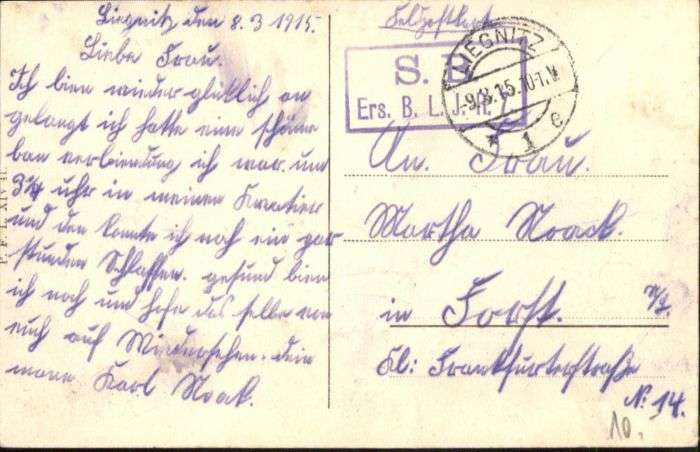 Liegnitz den 8.3 1915.
Liebe Frau.
Ich bien wieder glücklich an
gelangt ich hatte eine schöne
ban verbiendung ich war um
3¼ uhr in meinen Kwatier
und den konnte ich noch ein par
stunden Schlaffen. gesund bien
ich noch und hofe das selbe von
euch auf Wiedersehen. dein
mann Karl Noack.
Feldpostkarte
S. B.
Ers. B. L. J. R. 7
LIEGNITZ
-9.3.15.10-11.V.
* 1 c
An. Frau.
Martha Noack.
in Forst. N/L.
Kl: Frankfurterstraße
No: 14.
10.